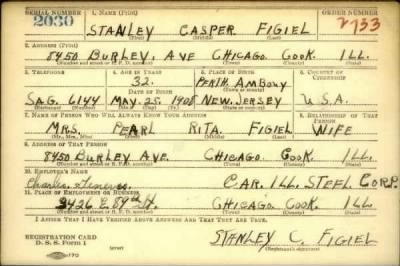 SERIAL NUMBER 1. NAME (Print) ORDER NUMBER
2030 STANLEY CASPER FIGIEL 2733
(First) (Middle) (Last)
2. ADDRESS (Print)
8450 BURLEY, AVE CHICAGO COOK ILL.
(Number and street or R. F. D. number) (Town) (County) (State)
3. TELEPHONE 4. AGE IN YEARS 5. PLACE OF BIRTH 6. COUNTRY OF CITIZENSHIP
32. PERTH AMBOUY
DATE OF BIRTH
SAG. 6144 MAY-25-1908 NEW JERSEY U.S.A.
(Exchange) (Number) (Mo.) (Day) (Yr.) (State or country)
7. NAME OF PERSON WHO WILL ALWAYS KNOW YOUR ADDRESS 8. RELATIONSHIP OF THAT PERSON
MRS. PEARL RITA FIGIEL WIFE
(Mr., Mrs., Miss) (First) (Middle) (Last)
9. ADDRESS OF THAT PERSON
8450 BURLEY AVE. CHICAGO COOK ILL.
(Number and street or R. F. D. number) (Town) (County) (State)
10. EMPLOYER'S NAME
CAR. ILL. STEEL CORP.
11. PLACE OF EMPLOYMENT OR BUSINESS
3426 E 89th St. CHICAGO COOK ILL
(Number and street or R. F. D. number) (Town) (County) (State)
I AFFIRM THAT I HAVE VERIFIED ABOVE ANSWERS AND THAT THEY ARE TRUE.
REGISTRATION CARD
D. S. S. Form 1
STANLEY C. FIGIEL
(Registrant's signature)